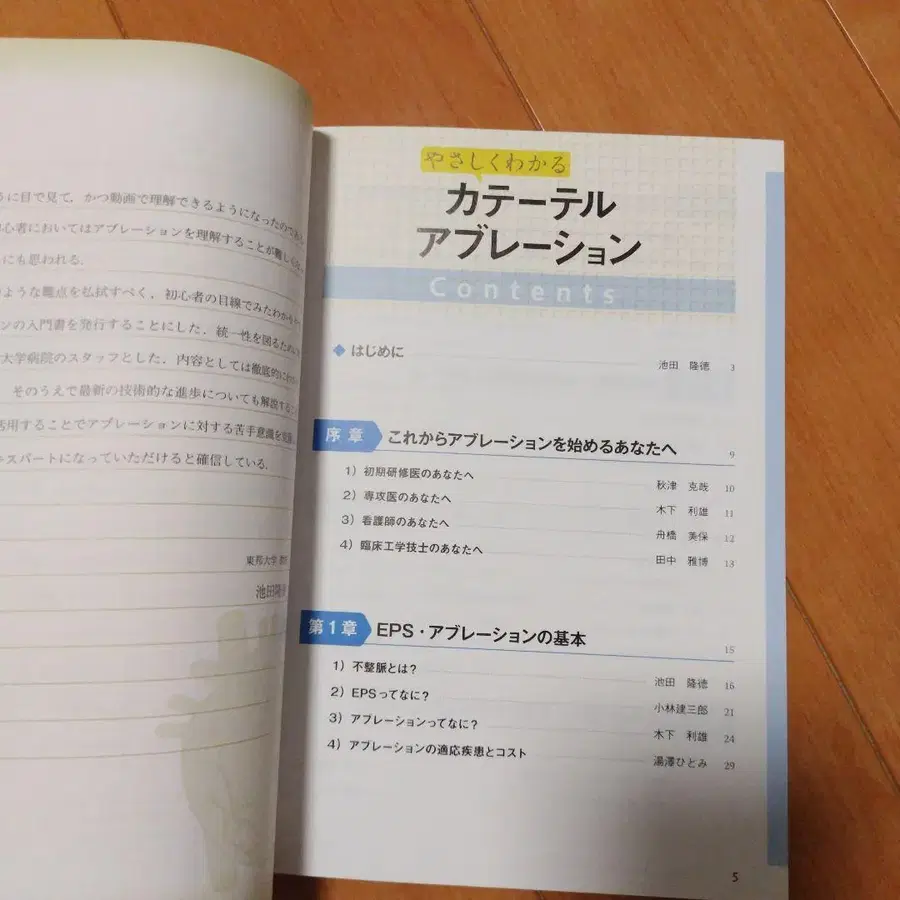 うに目で見て，かつ動画で理解できるようになったので
心者においてはアブレーションを理解することが難し
にも思われる．
のような観点を払拭すべく，初心者の目線でみたわかり
ンの入門書を発行することにした．統一性を図るため
大学病院のスタッフとした．内容としては徹底的に
そのうえで最新の技術的な進歩についても解説する
活用することでアブレーションに対する苦手意識を
キスパートになっていただけると確信している．
東邦大学
池田隆
やさしくわかる
カテーテル
アブレーション
Contents
◆ はじめに 池田 隆徳 3
序章 これからアブレーションを始めるあなたへ 9
1）初期研修医のあなたへ 秋津 克哉 10
2）専攻医のあなたへ 木下 利雄 11
3）看護師のあなたへ 舟橋 美保 12
4）臨床工学技士のあなたへ 田中 雅博 13
第1章 EPS・アブレーションの基本 15
1）不整脈とは？ 池田 隆徳 16
2）EPSってなに？ 小林建三郎 21
3）アブレーションってなに？ 木下 利雄 24
4）アブレーションの適応疾患とコスト 湯澤ひとみ 29
5